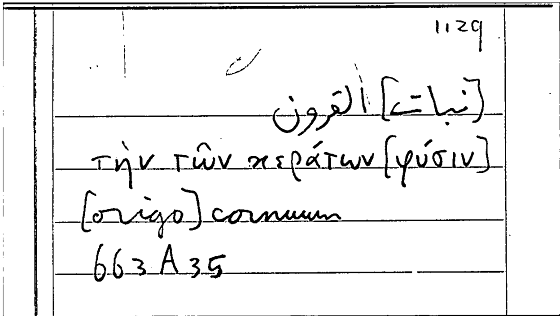 1129
[نبات] القرون
τὴν τῶν κεράτων [φύσιν]
[origo] cornuum
663 A 35